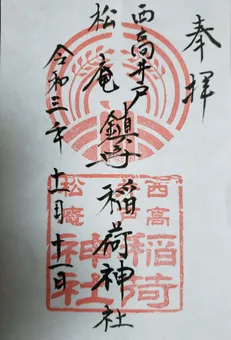 奉拝
西高井戸
松庵
鎮守 稲荷神社
令和三年 十一月十一日
西高井戸
松庵
稲荷
神社